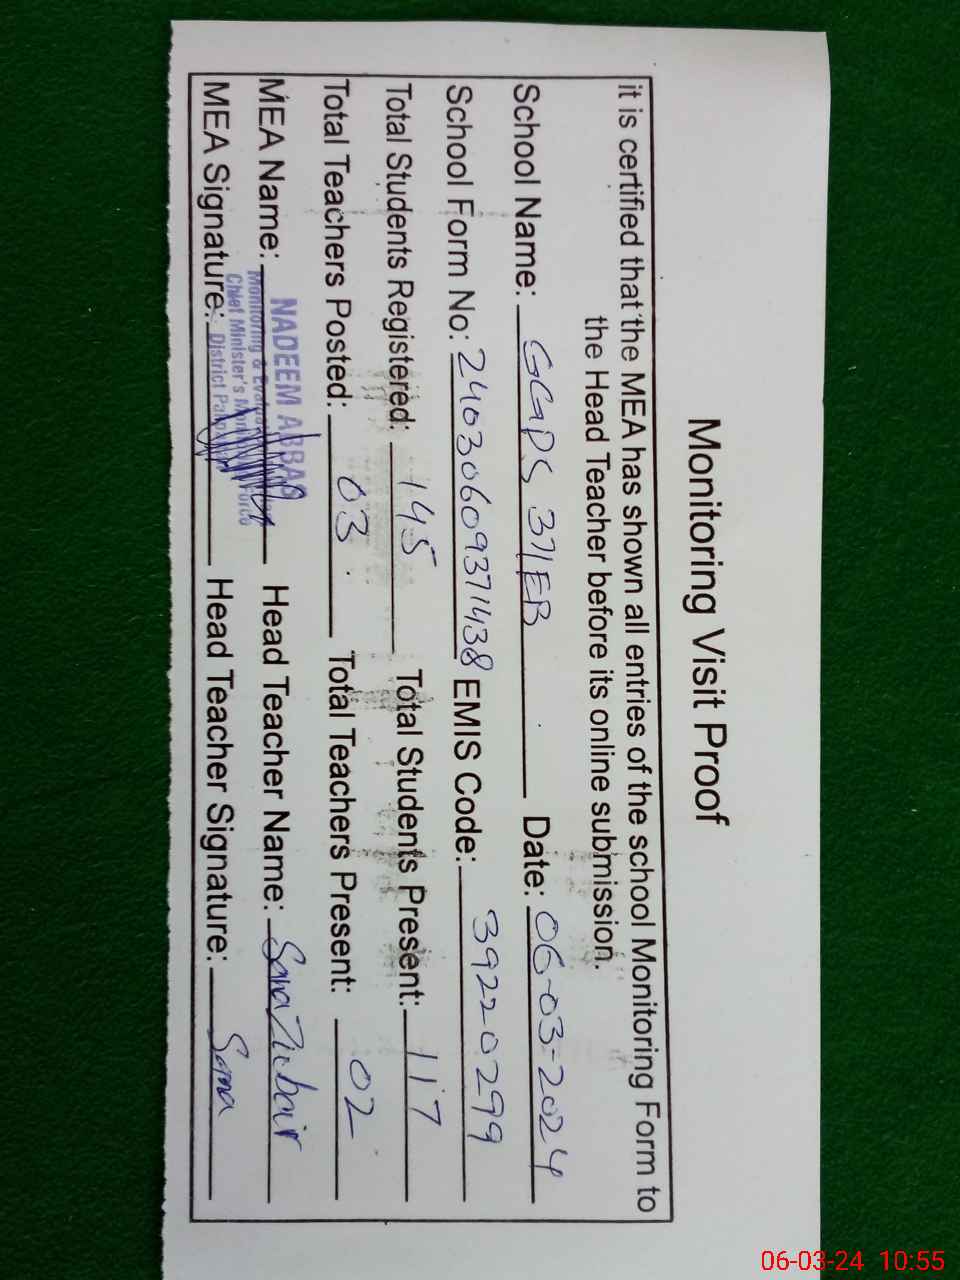 Monitoring Visit Proof
it is certified that the MEA has shown all entries of the school Monitoring Form to
the Head Teacher before its online submission.
School Name: GGPS 37/EB Date: 06-03-2024
School Form No: 24030609371438 EMIS Code: 39220299
Total Students Registered: 145 Total Students Present: 117
Total Teachers Posted: 03 Total Teachers Present: 02
MEA Name: NADEEM ABBAS Head Teacher Name: Sana Zubair
Monitoring &
Chief Minister's Force
District
MEA Signature: Head Teacher Signature: Sana
06-03-24 10:55